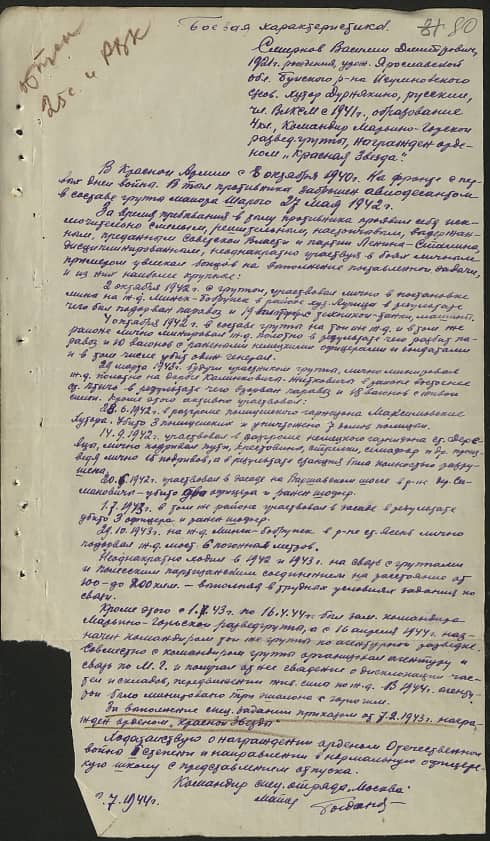 Боевая характеристика.
80
Смирнов Василий Дмитриевич,
1921г. рождения, урож. Ярославской
обл. р-на
хутор русский,
чл. ВЛКСМ с 1941г., образование
4кл., Командир Марьино-Горской
разведгруппы, награжден орде-
ном „Красная Звезда".
В Красной Армии с 8 октября 1940г. На фронте с пер-
вых дней война. В тыл противника заброшен авиадесантом
в составе группы майора 27 мая 1942г.
За время пребывания в тылу противника проявил себя иск-
лючительно смелым, решительным, настойчивым, выдержан-
ным, преданным Советской Власти и партии Ленина-Сталина,
дисциплинированным, неоднократно участвуя в боях личным
примером увлекал бойцов на выполнение поставленной задачи,
и из них наиболее крупные:
2 октября 1942г. с группой, участвовал лично в постановке
мина на ж.д. Минск-Бобруйск в районе в результате
чего был подорван паровоз и 19
1942г. в составе группы на той же ж.д. и в том же
районе лично минировал ж.д. полотно в результате чего разбит па-
ровоз и 10 вагонов с ранеными немецкими офицерами и солдатами
и в том числе убит один генерал.
29 марта 1943г. будучи участником группы, лично минировал
ж.д. полотно на дороге Калинковичи-Житковичи в районе восточнее
ст. в результате чего взорван паровоз и вагонов с живой
силой. Кроме этого активно участвовал:
6.1942г. в разгроме полицейского гарнизона
хутора. Убито 3 полицейских и уничтожено 7 домов полиции.
14.9.1942г. участвовал в разгроме немецкого гарнизона ст.
лично подорвал пути, крестовины, стрелки, семафор и др. произ-
ведя лично подрывов, а в результате станция была полностью разру-
шена.
1942г. участвовал в засаде на Варшавском шоссе в р-не
убито два офицера и ранен шофер.
1.7.1943г. в том же районе участвовал в засаде в результате
убито 3 офицера и ранен шофер.
29.10.1943г. на ж.д. Минск-Бобруйск в р-не ст. Ясень лично
подорвал ж.д. мост 6 погонная метров.
Неоднократно ходил в 1942 и 1943г. на связь с группами
и Полесским партизанским соединением на расстояние от
100-до 200 клм. - выполняя в трудная условиях задания по
связи.
Кроме этого с 1.7.43г. по 16.4.44г. был зам. командира
Марьино-Горской разведгруппы, а с 16 апреля 1944г. наз-
начен командиром той же группы по агентурной разведке.
Совместно с командиром группы организовал агентуру и
связь по М.Г. и получал от нее сведения о дислокации час-
тей и складов, передвижении жив. сила по ж.д. В 1944г. аген-
было минировано три эшелона с горючим.
За выполнение спец. задания приказом от 7.2.1943г. награ-
жден орденом „Красной Звезда"
Ходатайствую о награждении орденом Отечественной
война степени и направлении в нормальную офицерс-
кую школу с представлением отпуска.
Командир спец. отряда „Москва"
майор
7.1944г.